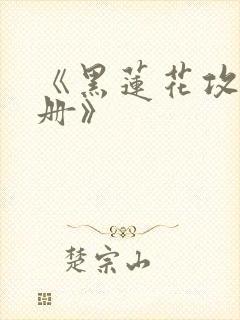 《黑蓮花攻
册》
楚宗山